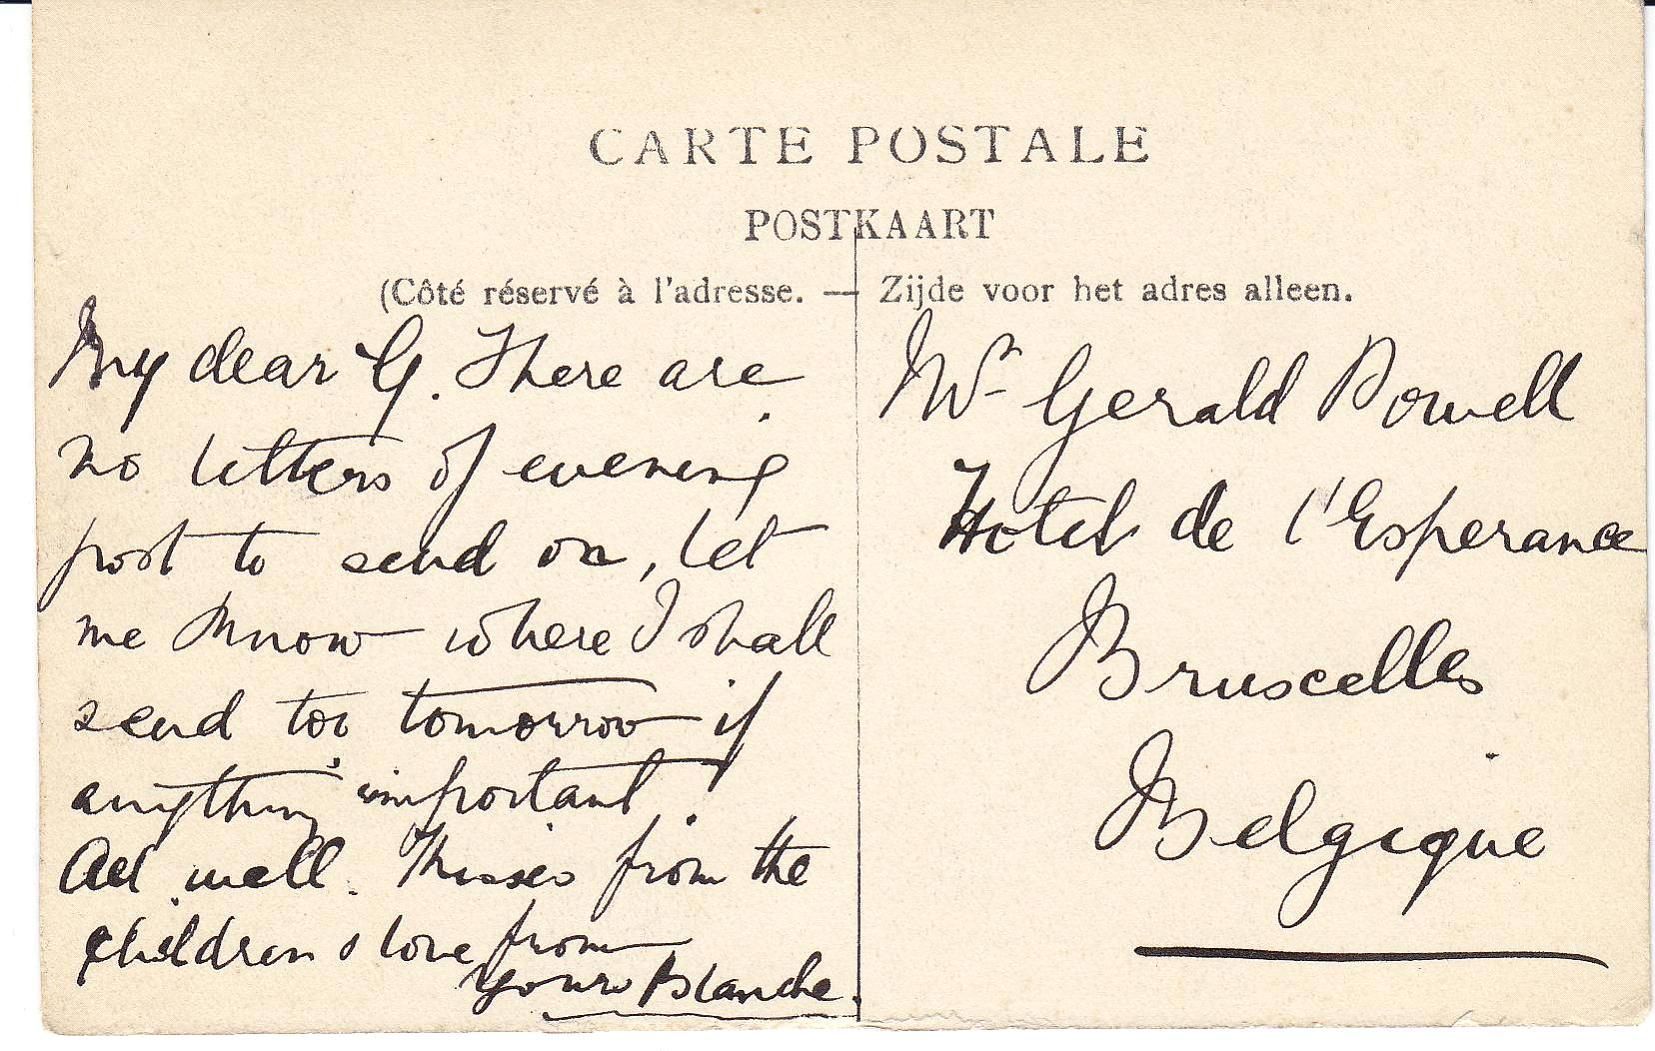 CARTE POSTALE
POSTKAART
(Côté réservé à l'adresse. — Zijde voor het adres alleen.
My dear G. There are
no letters of evening
post to send on, let
me know where I shall
send too tomorrow if
anything important.
All well. Kisses from the
children & love from
Yours Blanche.
Mr Gerald Powell
Hotel de l'Esperance
Bruxelles
Belgique